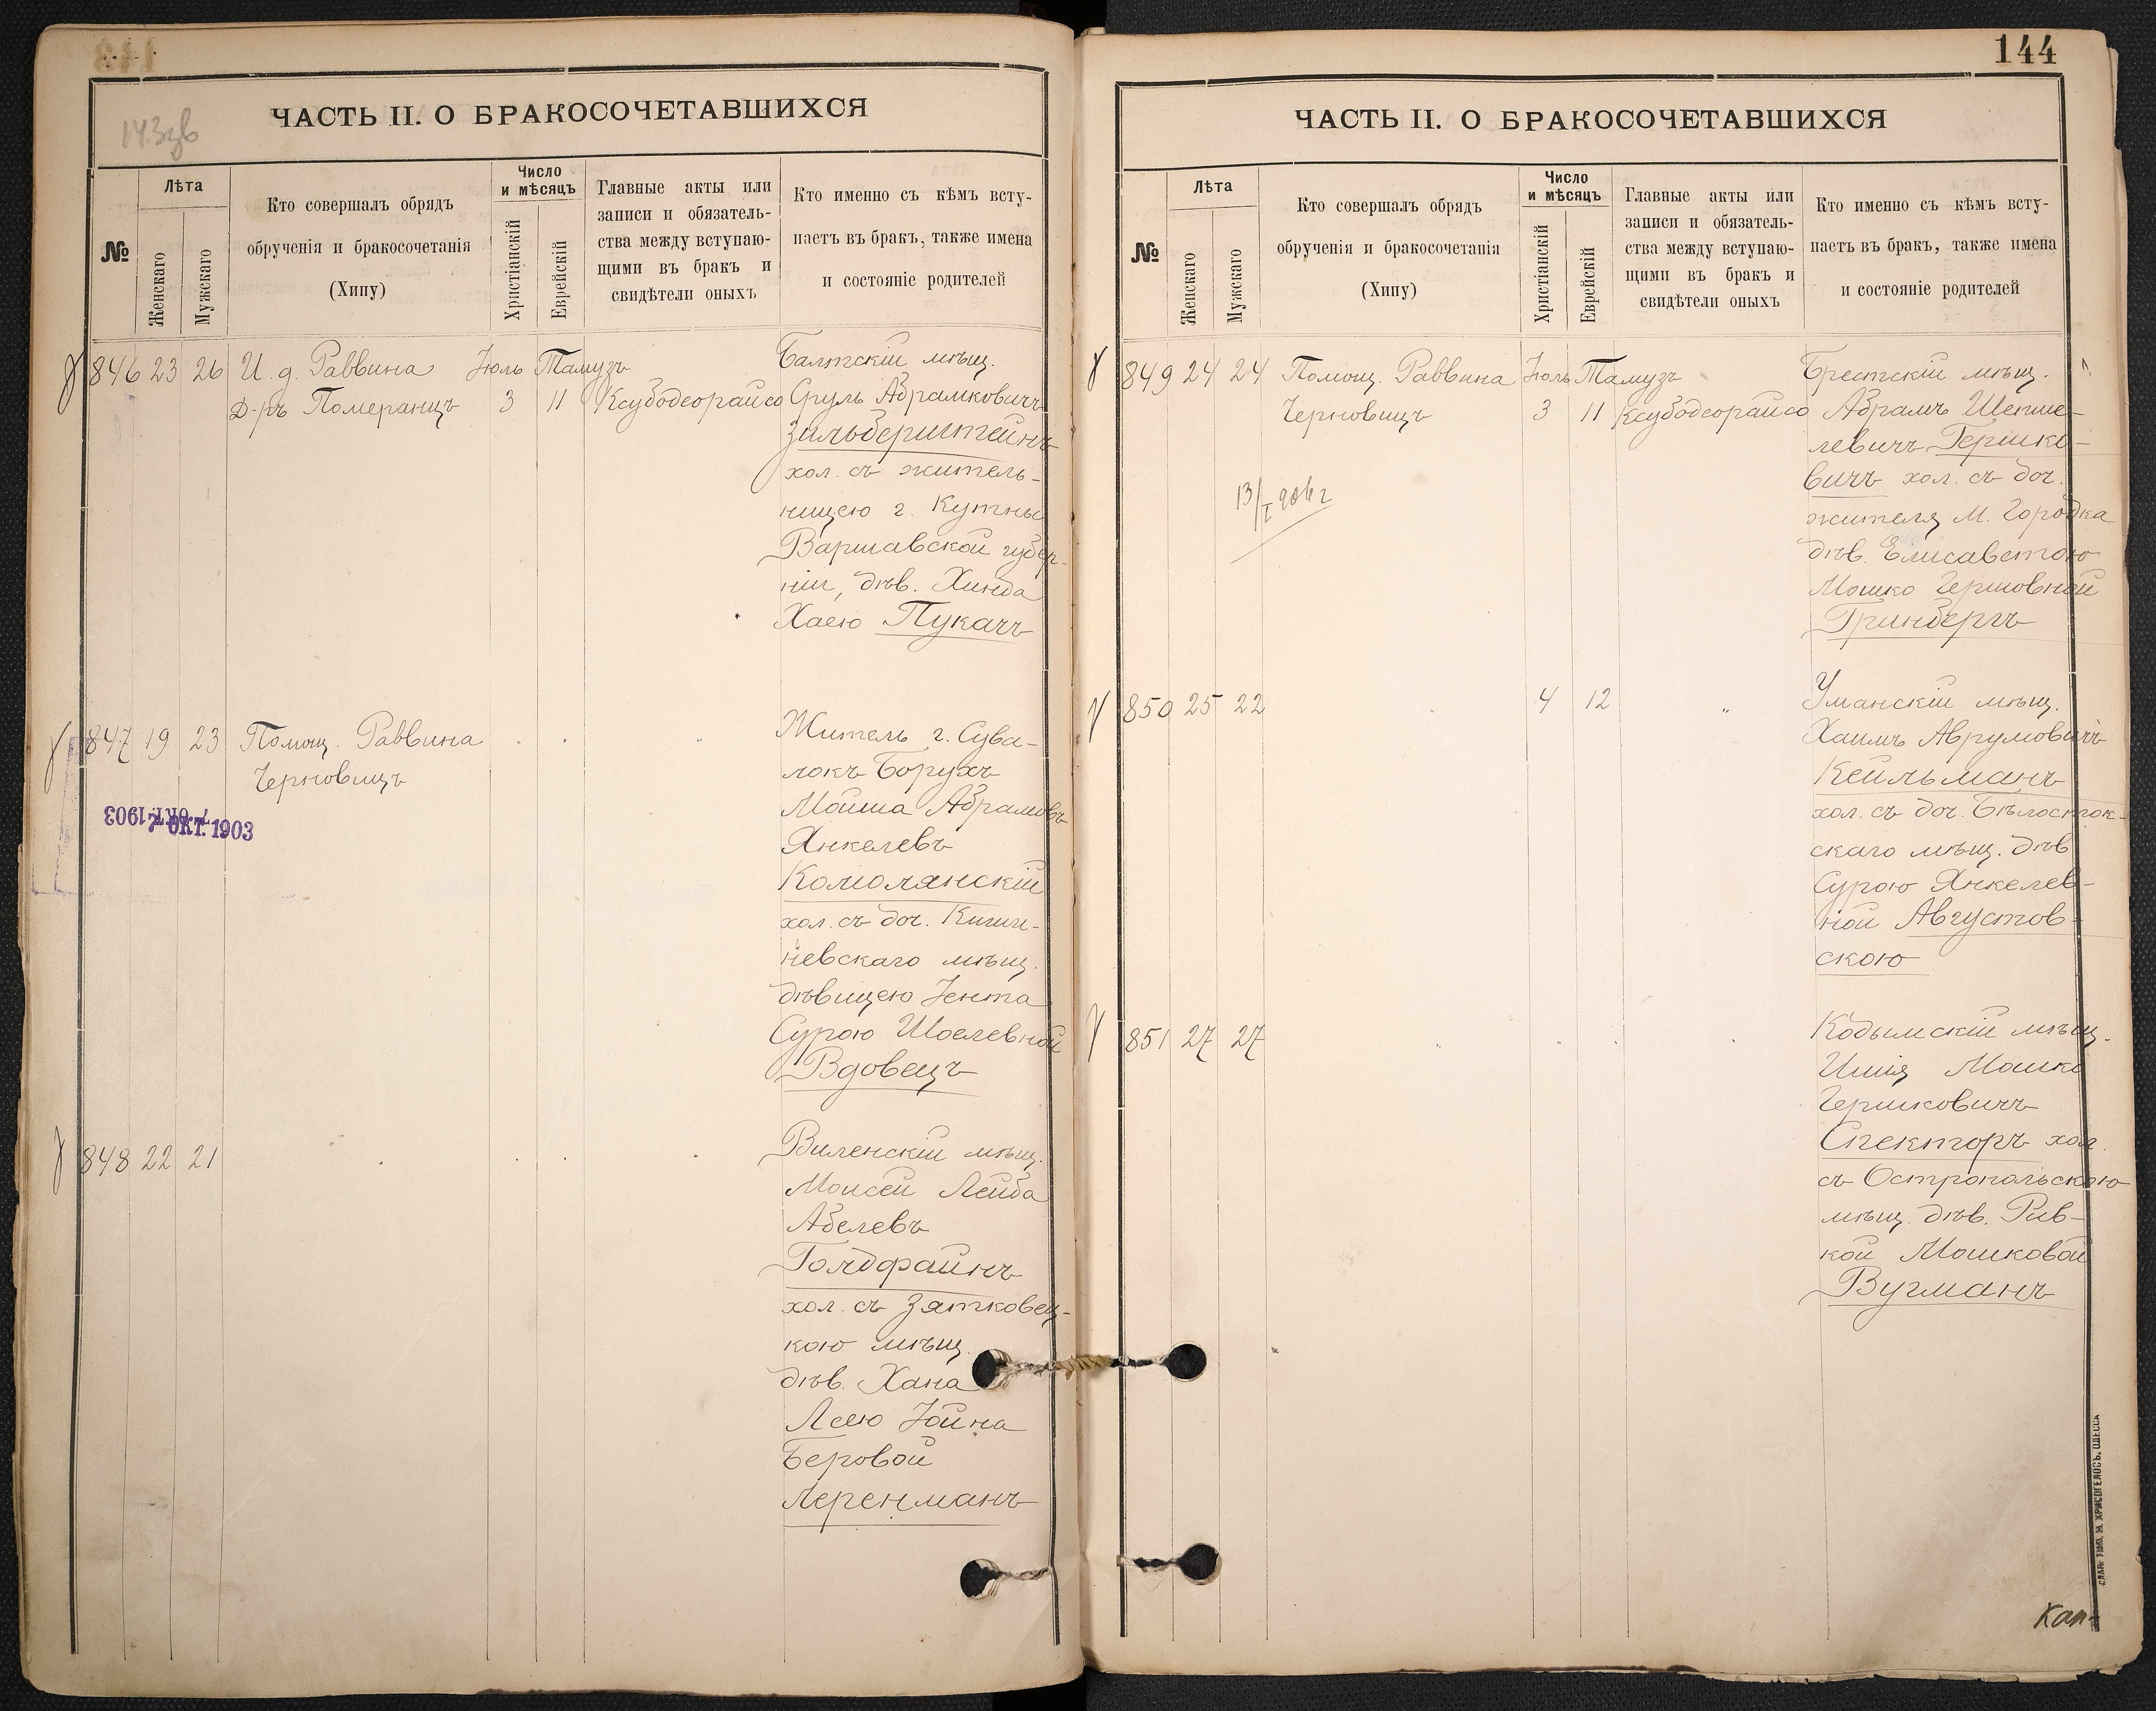 143зв
ЧАСТЬ II. О БРАКОСОЧЕТАВШИХСЯ
№
Лѣта
Женскаго
Мужскаго
Кто совершалъ обрядъ
обрученія и бракосочетанія
(Хипу)
Число
и мѣсяцъ
Христіанскій
Еврейскій
Главные акты или
записи и обязатель-
ства между вступаю-
щими въ бракъ и
свидѣтели оныхъ
Кто именно съ кѣмъ всту-
паетъ въ бракъ, также имена
и состояніе родителей
846 23 26 И. д. Раввина Іюль Тамузъ
Д-ръ Померанцъ 3 11 Ксубодеорайсо
Балтскій мѣщ.
Сруль Абрамковичъ
Зильберштейнъ
хол. съ житель-
ницею г. Кутны
Варшавской губер-
ніи, дѣв. Хинда
Хаею Пукачъ
847 19 23 Помощ. Раввина
Черновицъ
7 ОКТ. 1903
7 ОКТ. 1903
Житель г. Сува-
локъ Борухъ
Мойша Абрамовъ
Янкелевъ
Комолянскій
хол. съ доч. Кишин-
невскаго мѣщ.
дѣвицею Іента
Сурою Шоелевной
Вдовецъ
848 22 21
Виленскій мѣщ.
Моисей Лейба
Абелевъ
Голдфайнъ
хол. съ Зятковец-
кою мѣщ.
дѣв. Хана
Леею Іойна
Беровой
Леренманъ
144
ЧАСТЬ II. О БРАКОСОЧЕТАВШИХСЯ
№
Лѣта
Женскаго
Мужскаго
Кто совершалъ обрядъ
обрученія и бракосочетанія
(Хипу)
Число
и мѣсяцъ
Христіанскій
Еврейскій
Главные акты или
записи и обязатель-
ства между вступаю-
щими въ бракъ и
свидѣтели оныхъ
Кто именно съ кѣмъ всту-
паетъ въ бракъ, также имена
и состояніе родителей
849 24 24 Помощ. Раввина Іюль Тамузъ
Черновицъ 3 11 Ксубодеорайсо
13/I 906 г
Брестскій мѣщ.
Абрамъ Шепше-
левичъ Гершко-
вичъ хол. съ доч.
жителя м. Городка
дѣв. Елисаветою
Мошко Гершовной
Гринбергъ
850 25 22 4 12 "
Уманскій мѣщ.
Хаимъ Аврумовичъ
Кейльманъ
хол. съ доч. Бѣлосток-
скаго мѣщ. дѣв
Сурою Янкелев-
ной Августов-
скою
851 27 27
Кодымскій мѣщ.
Ишія Мошко
Гершковичъ
Спекторъ хол.
съ Острополъскою
мѣщ. дѣв. Рив-
кой Мошковой
Вугманъ
СКЛ. ТИПО. М. ХРИСОГЕЛОСЪ, ОДЕССА
Кап-